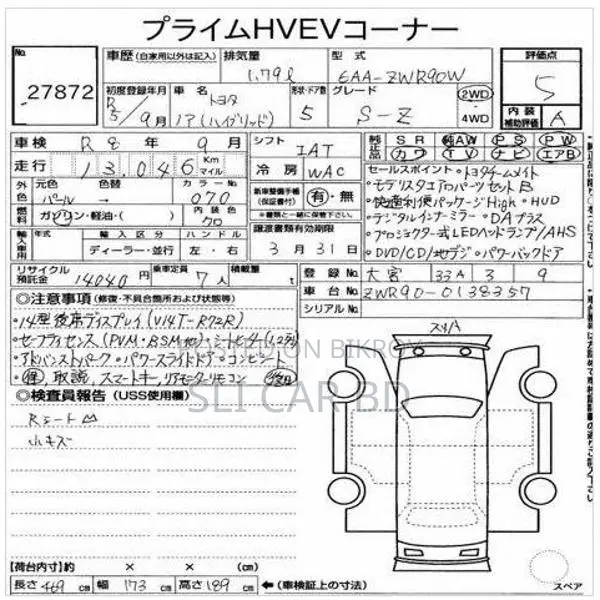 プライムHVEVコーナー
No. 27872
車歴 (自家用以外は記入) 排気量 1.79ℓ 型式 6AA-ZWR90W 評価点 5
初度登録年月 R5/9月 車名 トヨタ ノア(ハイブリッド) 形状・ドア数 5 グレード S-Z 2WD 4WD 内装補助評価 A
車検 R8年9月 シフト IAT 純正品 SR 純AW PS PW
走行 13,046 Km マイル 冷房 WAC カワ TV ナビ エアB
外色 元色 パール→ 色替 カラーNo 070 新車整備手帳(保証書付) 有・無
燃料 ガソリン・軽油・( ) 内装色 クロ <書類と一緒に保管して下さい。>
輸入車用 年式 輸入区分 ディーラー・並行 ハンドル 左・右 譲渡書類有効期限 3月31日
セールスポイント・トヨタチームメイト
・モデリスタエアロパーツセットB
・快適利便パッケージHigh・HUD
・デジタルインナーミラー・DAプラス
・プロジェクター式LEDヘッドランプ/AHS
・DVD/CD/地デジ・パワーバックドア
リサイクル預託金 14040円 乗車定員 7人 積載量 t 登録No 大宮 33A 3 9
車台No ZWR90-0138357
シリアルNo
○注意事項 (修復・不具合箇所および状態等)
・14型後席ディスプレイ(V14T-R72R)
・セーフティセンス(PVM・BSM他)・シートヒーター(1,2列)
・アドバンストパーク・パワースライドドア・コンビシート
・保,取説,スマートキー,リアモーターリモコン
○検査員報告 (USS使用欄)
Rシート
小キズ
スリA
BIKROY
SLI CAR BD
【荷台内寸】約 × × (cm)
長さ 469 cm 幅 173 cm 高さ 189 cm ←(車検証上の寸法)
スペア